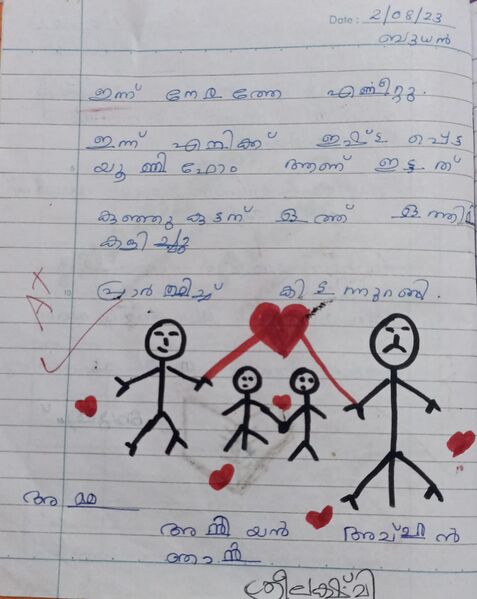 Date : 2/08/23
ബുധൻ
ഇന്ന് നേരത്തേ എണീറ്റു.
ഇന്ന് എനിക്ക് ഇഷ്ട പ്പെട്ട
യൂണിഫോം ആണ് ഇട്ടത്
കുഞ്ഞു കുട്ടന്
കളിച്ചു
പ്രാർത്ഥിച്ച് കിട ന്നുറങ്ങി.
A+
അമ്മ
അനിയൻ അച്ഛൻ
ഞാൻ
ശ്രീലക്ഷ്മി